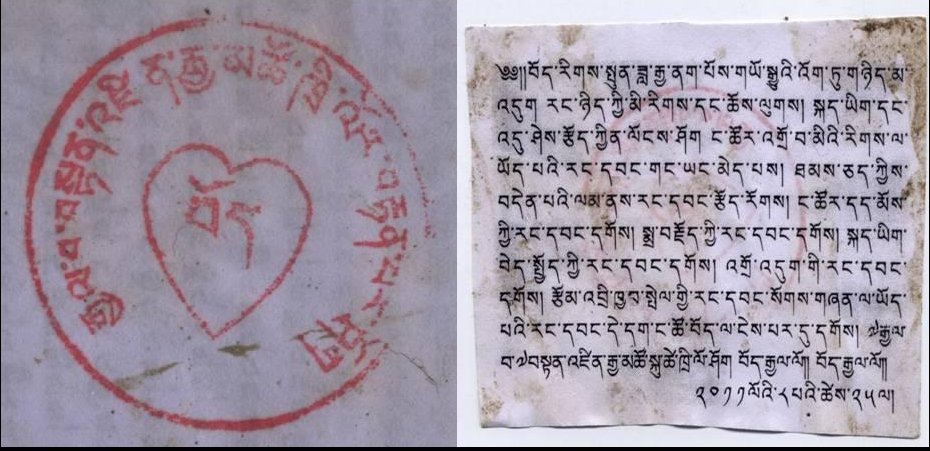 རྒྱལ་བ་བསྟན་འཛིན་རྒྱ་མཚོ་ཁྲི་ལོ་བརྟན་པར་ཤོག
བོད
༄༅།།བོད་རིགས་སྤུན་ཟླ་རྒྱ་ནག་པོས་གཡོ་སྒྱུའི་འོག་ཏུ་གཉིད་མ་
འདུག རང་ཉིད་ཀྱི་མི་རིགས་དང་ཆོས་ལུགས། སྐད་ཡིག་དང་
འདུ་ཤེས་རྩོད་ཀྱིན་ལོངས་ཤོག ང་ཚོར་འགྲོ་བ་མིའི་རིགས་ལ་
ཡོད་པའི་རང་དབང་གང་ཡང་མེད་པས། ཐམས་ཅད་ཀྱིས་
བདེན་པའི་ལམ་ནས་རང་དབང་རྩོད་རོགས། ང་ཚོར་དད་མོས་
ཀྱི་རང་དབང་དགོས། སྨྲ་བརྗོད་ཀྱི་རང་དབང་དགོས། སྐད་ཡིག་
བེད་སྤྱོད་ཀྱི་རང་དབང་དགོས། འགྲོ་འདུག་གི་རང་དབང་
དགོས། རྩོམ་འབྲི་ཁྱབ་སྤེལ་གྱི་རང་དབང་སོགས་གཞན་ལ་ཡོད་
པའི་རང་དབང་དེ་དག་ང་ཚོ་བོད་ལ་ངེས་པར་དུ་དགོས། ༧རྒྱལ་
བ་༧བསྟན་འཛིན་རྒྱ་མཚོ་སྐུ་ཚེ་ཁྲི་ལོ་ཤོག བོད་རྒྱལ་ལོ།། བོད་རྒྱལ་ལོ།།
༢༠༡༡ལོའི་༨པའི་ཚེས་༢༥ལ།